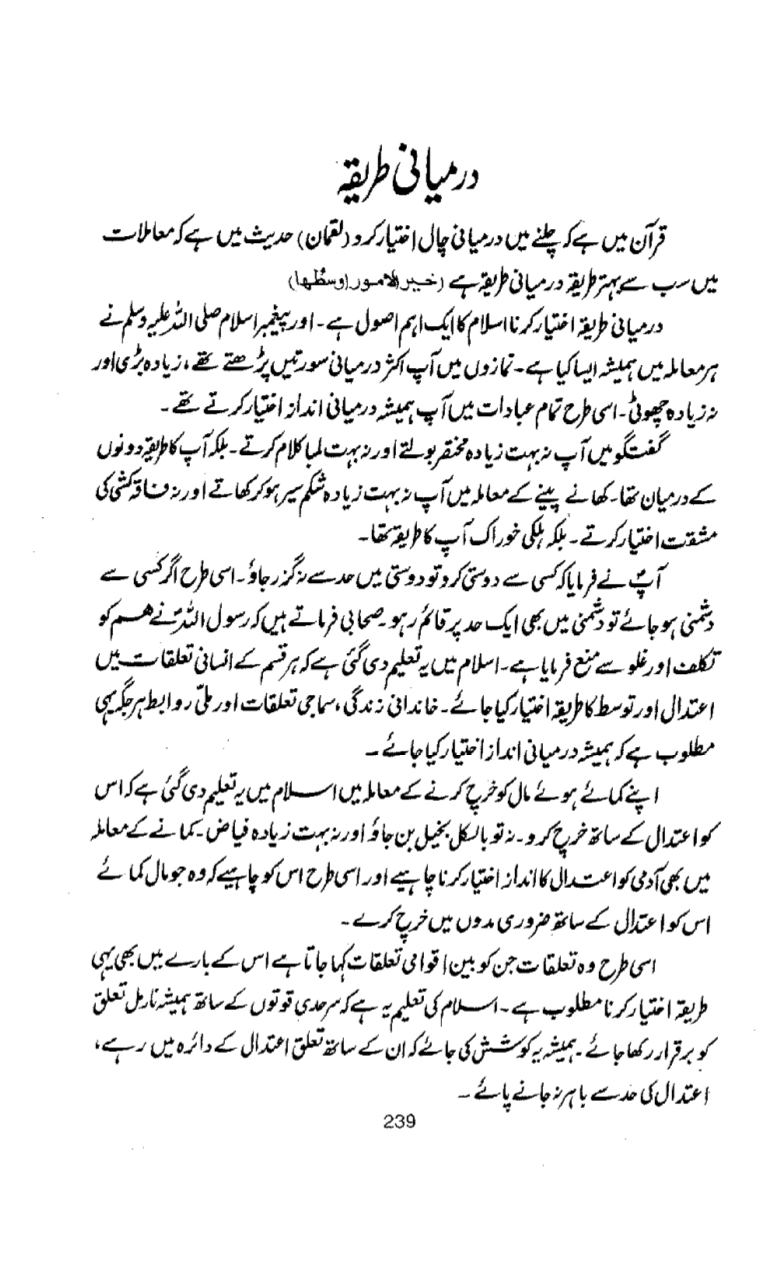 درمیانی طریقہ
قرآن میں ہے کہ چلنے میں درمیانی چال اختیار کرو (لقمان) حدیث میں ہے کہ معاملات
میں سب سے بہتر طریقہ درمیانی طریقہ ہے (خیر الامور اوسطہا)
درمیانی طریقہ اختیار کرنا اسلام کا ایک اہم اصول ہے۔ اور پیغمبر اسلام صلی اللہ علیہ وسلم نے
ہر معاملہ میں ہمیشہ ایسا کیا ہے۔ نمازوں میں آپ اکثر درمیانی سورتیں پڑھتے تھے، زیادہ بڑی اور
نہ زیادہ چھوٹی۔ اسی طرح تمام عبادات میں آپ ہمیشہ درمیانی انداز اختیار کرتے تھے۔
گفتگو میں آپ نہ بہت زیادہ مختصر بولتے اور نہ بہت لمبا کلام کرتے۔ بلکہ آپ کا طریقہ دونوں
کے درمیان تھا۔ کھانے پینے کے معاملہ میں آپ نہ بہت زیادہ شکم سیر ہو کر کھاتے اور نہ فاقہ کشی کی
مشقت اختیار کرتے۔ بلکہ ہلکی خوراک آپ کا طریقہ تھا۔
آپؐ نے فرمایا کہ کسی سے دوستی کرو تو دوستی میں حد سے نہ گزر جاؤ۔ اسی طرح اگر کسی سے
دشمنی ہو جائے تو دشمنی میں بھی ایک حد پر قائم رہو۔ صحابی فرماتے ہیں کہ رسول اللہؐ نے ہم کو
تکلف اور غلو سے منع فرمایا ہے۔ اسلام میں یہ تعلیم دی گئی ہے کہ ہر قسم کے انسانی تعلقات میں
اعتدال اور توسط کا طریقہ اختیار کیا جائے۔ خاندانی زندگی، سماجی تعلقات اور ملّی روابط ہر جگہ یہی
مطلوب ہے کہ ہمیشہ درمیانی انداز اختیار کیا جائے۔
اپنے کمائے ہوئے مال کو خرچ کرنے کے معاملہ میں اسلام میں یہ تعلیم دی گئی ہے کہ اس
کو اعتدال کے ساتھ خرچ کرو۔ نہ تو بالکل بخیل بن جاؤ اور نہ بہت زیادہ فیاض۔ کمانے کے معاملہ
میں بھی آدمی کو اعتدال کا انداز اختیار کرنا چاہیے اور اسی طرح اس کو چاہیے کہ وہ جو مال کمائے
اس کو اعتدال کے ساتھ ضروری مدوں میں خرچ کرے۔
اسی طرح وہ تعلقات جن کو بین اقوامی تعلقات کہا جاتا ہے اس کے بارے میں بھی یہی
طریقہ اختیار کرنا مطلوب ہے۔ اسلام کی تعلیم یہ ہے کہ سرحدی قوتوں کے ساتھ ہمیشہ نارمل تعلق
کو برقرار رکھا جائے۔ ہمیشہ یہ کوشش کی جائے کہ ان کے ساتھ تعلق اعتدال کے دائرہ میں رہے،
اعتدال کی حد سے باہر نہ جانے پائے۔
239